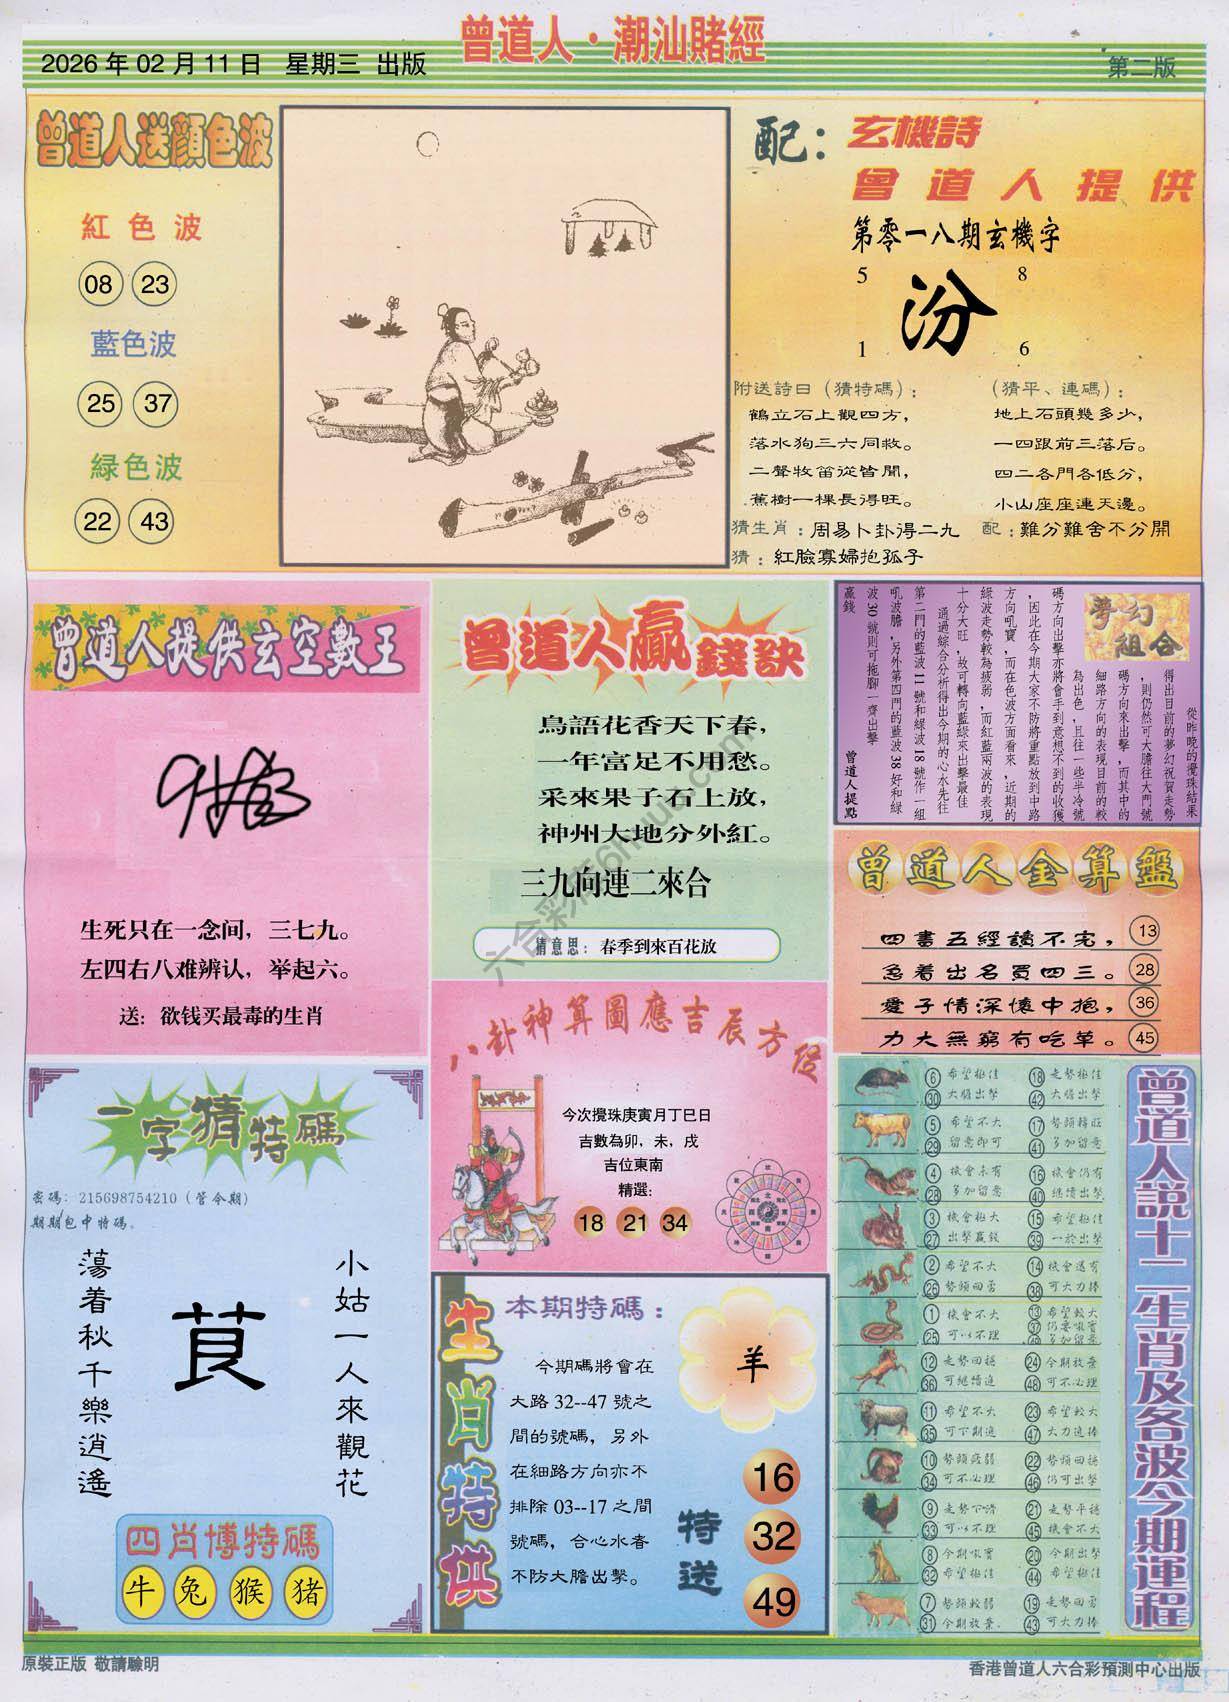 曾道人·潮汕賭經
2026 年 02 月 11 日 星期三 出版
第二版
曾道人送顏色波
紅色波
08 23
藍色波
25 37
緑色波
22 43
配：
玄機詩
曾道人提供
第零一八期玄機字
5 8
汾
1 6
附送詩曰（猜特碼）：
鶴立石上觀四方，
落水狗三六同救。
二聲牧笛從皆聞，
蕉樹一棵長得旺。
（猜平、連碼）：
地上石頭幾多少，
一四跟前三落后。
四二各門各低分，
小山座座連天邊。
猜生肖：周易卜卦得二九
配：難分難舍不分開
猜：紅臉寡婦抱孤子
曾道人提供玄空數王
生死只在一念间，三七九。
左四右八难辨认，举起六。
送：欲钱买最毒的生肖
曾道人贏錢訣
鳥語花香天下春，
一年富足不用愁。
采來果子石上放，
神州大地分外紅。
三九向連二來合
猜意思：春季到來百花放
夢幻組合
從昨晚的攪珠結果
得出目前的夢幻祝賀走勢
，則仍然可大膽往大門號
碼方向來出擊，而其中的
細路方向的表現目前的較
為出色，且往一些半冷號
碼方向出擊亦將會手到意想不到的收獲
，因此在今期大家不防將重點放到中路
方向吼寶，而在色波方面看來，近期的
綠波走勢較為疲弱，而紅藍兩波的表現
十分大旺，故可轉向藍綠來出擊最佳
通過綜合分析得出今期的心水先往
第二門的藍波 11 號和綠波 18 號作一組
吼波膽，另外第四門的藍波 38 好和綠
波 30 號則可拖腳一齊出擊
贏錢
曾道人提點
曾道人金算盤
四書五經讀不完，13
急着出名買四三。28
愛子情深懷中抱，36
力大無窮有吃草。45
八卦神算圖應吉辰方位
今次攪珠庚寅月丁巳日
吉數為卯，未，戌
吉位東南
精選：
18 21 34
一字猜特碼
密碼：215698754210（管今期）
期期包中特碼。
小姑一人來觀花
茛
蕩着秋千樂逍遙
四肖博特碼
牛 兔 猴 猪
生肖特供
本期特碼：
今期碼將會在
大路 32--47 號之
間的號碼，另外
在細路方向亦不
排除 03--17 之間
號碼，合心水者
不防大膽出擊。
羊
特送
16
32
49
曾道人説十二生肖及各波今期運程
6 希望極佳 18 走勢極佳
30 大膽出擊 42 大膽出擊
5 希望不大 17 勢頭轉旺
29 留意即可 41 多加留意
4 機會未有 16 機會仍有
28 多加留意 40 繼續出擊
3 機會極大 15 希望極佳
27 出擊贏錢 39 一於出擊
2 希望不大 14 機會還有
26 勢頭回勇 38 可大力捧
1 機會不大 13 希望較大
25 可以不理 37 仍要吼實
49 多加留意
12 走勢回穩 24 今期放棄
36 可繼續追 48 可不必理
11 希望不大 23 希望較大
35 可下期追 47 大力追捧
10 勢頭疲弱 22 勢頭回穩
34 可不必理 46 仍可出擊
9 走勢下滑 21 走勢平穩
33 可以不理 45 機會不大
8 今期吼實 20 今期出擊
32 希望極佳 44 希望極佳
7 勢頭較弱 19 走勢回勇
31 今期放棄 43 可大力捧
原裝正版 敬請驗明
香港曾道人六合彩預測中心出版